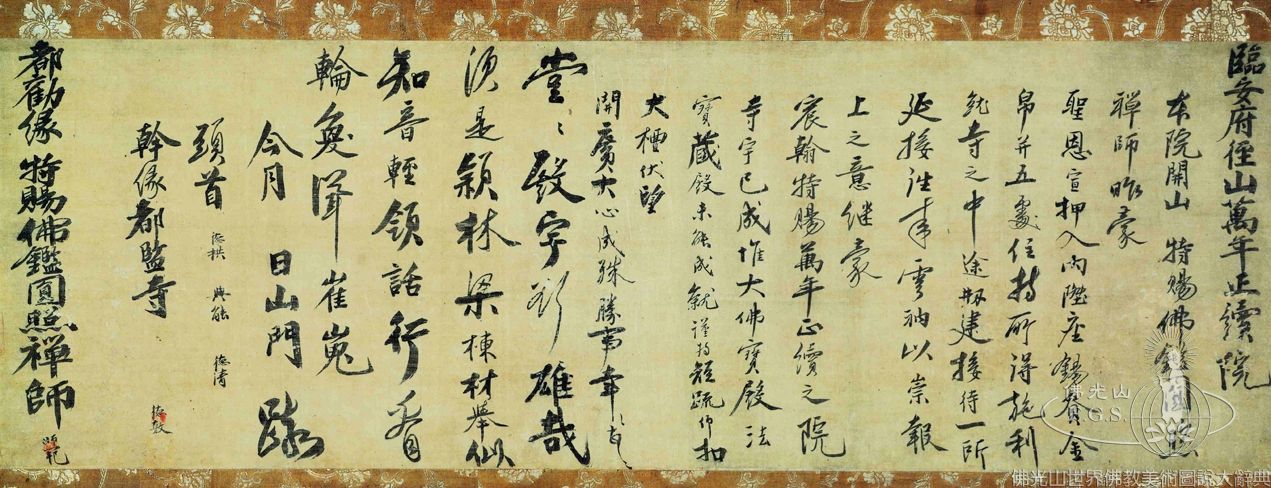 臨安府徑山萬年正續院
本院開山 特賜佛鑑圓照
禪師昨蒙
聖恩宣押入內陞座錫賚金
帛并五處住持所得施利
就寺之中途剏建接待一所
延接往來雲衲以崇報
上之意繼蒙
宸翰特賜萬年正續之院
寺宇已成惟大佛寶殿法
寶藏殿未能成就謹持短疏仰扣
大檀伏望
開廣大心成殊勝事幸
堂〻殿宇 雄哉
須是 林梁棟材舉似
知音輕領話行看
輪奐 崔嵬
今月 日山門 疏
頭首 典能 德清
幹緣都監寺
都勸緣特賜佛鑑圓照禪師
佛光山
G.S.
佛光山世界佛教美術圖說大辭典